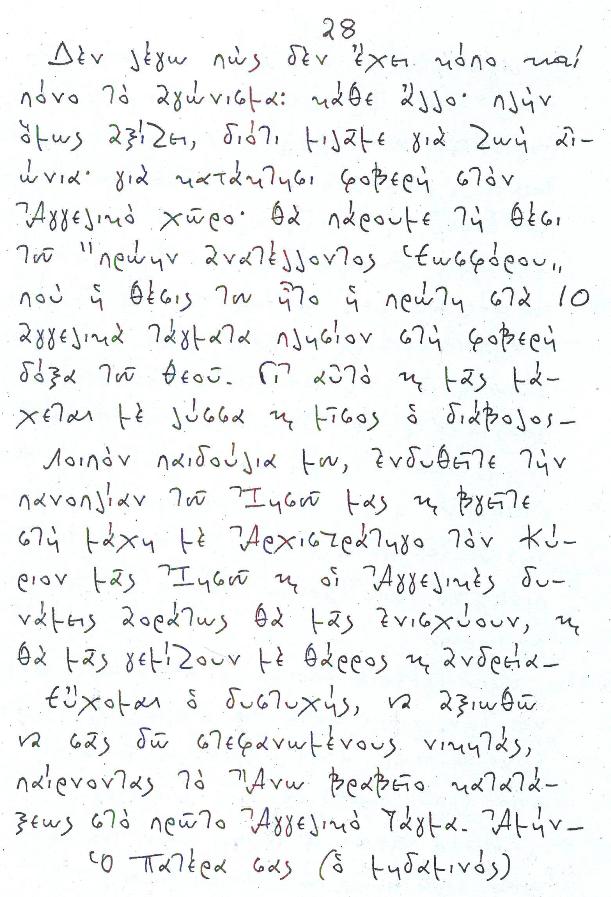 28
Δὲν λέγω πὼς δὲν ἔχει κόπο καί
πόνο τὸ ἀγώνισμα· κάθε ἄλλο· πλὴν
ὅμως ἀξίζει, διότι μιλᾶμε γιὰ Ζωὴ αἰ-
ώνια· γιὰ κατάκτησι φοβερὴ στὸν
Ἀγγελικὸ χῶρο· θὰ πάρουμε τὴ θέσι
τοῦ "πρώην ἀνατέλλοντος Ἑωσφόρου„
ποὺ ἡ θέσις του ἦτο ἡ πρώτη στὰ 10
ἀγγελικὰ τάγματα πλησίον στὴ φοβερὴ
δόξα τοῦ Θεοῦ. Γι' αὐτὸ κ μᾶς μά-
χεται μὲ λύσσα κ μῖσος ὁ διάβολος-
Λοιπὸν παιδούλια μου, ἐνδυθεῖτε τὴν
πανοπλίαν τοῦ Ἰησοῦ μας κ βγεῖτε
στὴ μάχη μὲ Ἀρχιστράτηγο τὸν Κύ-
ριον μᾶς Ἰησοῦ κ οἱ Ἀγγελικὲς δυ-
νάμεις ἀοράτως θὰ μᾶς ἐνισχύουν, κ
θὰ μᾶς γεμίζουν μὲ θάρρος κ ἀνδρεία-
Εὔχομαι ὁ δυστυχής, να ἀξιωθῶ
να σᾶς δῶ στεφανωμένους νικητάς,
παίρνοντας τὸ Ἄνω βραβεῖο κατατά-
ξεως στὸ πρῶτο Ἀγγελικὸ Τάγμα. Ἀμήν-
Ὁ Πατέρα σας (ὁ μηδαμινός)